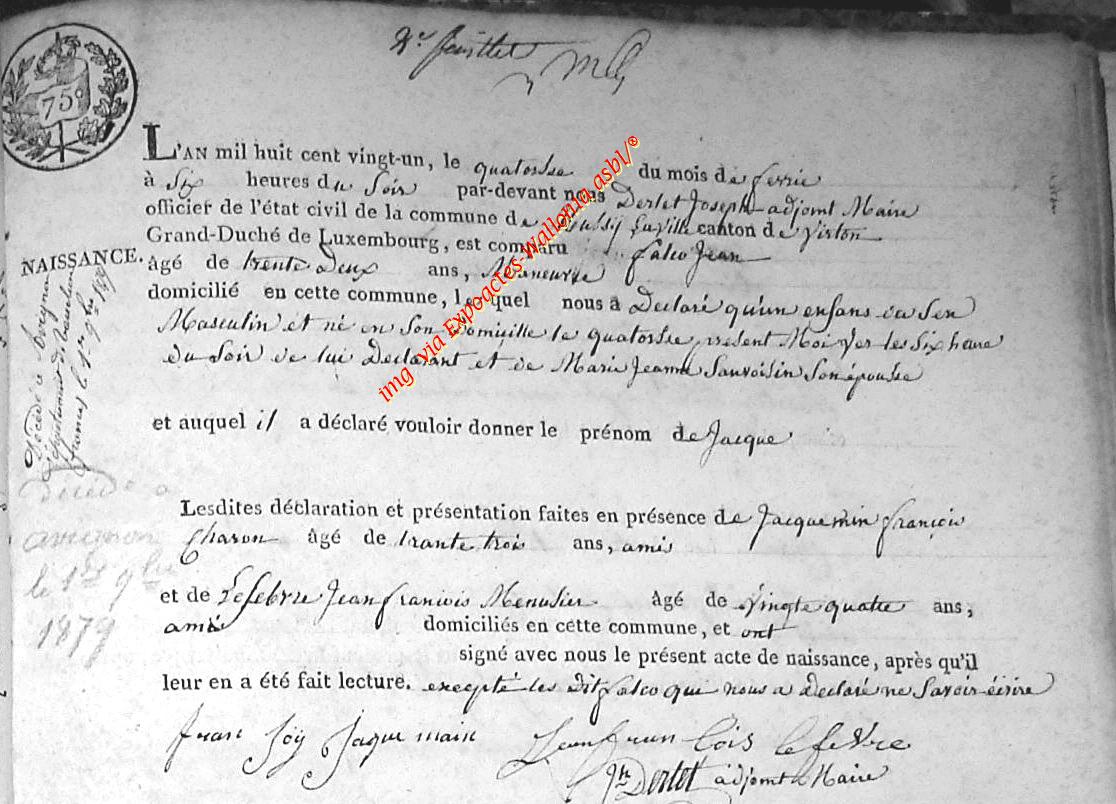 2e feuillet
75c
L'AN mil huit cent vingt-un, le quatorsse du mois de fevrie
à Six heures du Soir par-devant nous Dertet Joseph adjomt Maire
officier de l'état civil de la commune de canton de virton
Grand-Duché de Luxembourg, est comparu falco Jean
NAISSANCE.
âgé de trente Deux ans, Maneuvre
domicilié en cette commune, lequel nous a Declaré qu'un enfans du sex
Masculin et né en Son Domicille le quatorsse present Moi ver les Six heure
du Soir de lui Declarant et de Marie Jeanne Sauvoisin Son épousse
et auquel il a déclaré vouloir donner le prénom de Jacque
Lesdites déclaration et présentation faites en présence de Jacquemin françois
Charon âgé de trante trois ans, amis
et de Lefebvre Jean franiois Menusier âgé de vingte quatre ans,
amis domiciliés en cette commune, et ont
signé avec nous le présent acte de naissance, après qu'il
leur en a été fait lecture. excepté les dit falco qui nous a Declaré ne Savoir écrire
Jaque main Jean fran cois lefevre
Dertet adjomt Maire
Décédé à Avignon
département de Vaucluse
france le 1er 9bre 1879
Décédé a
avignon
le 1er 9bre
1879
img via Expoactes-Wallonia asbl/®